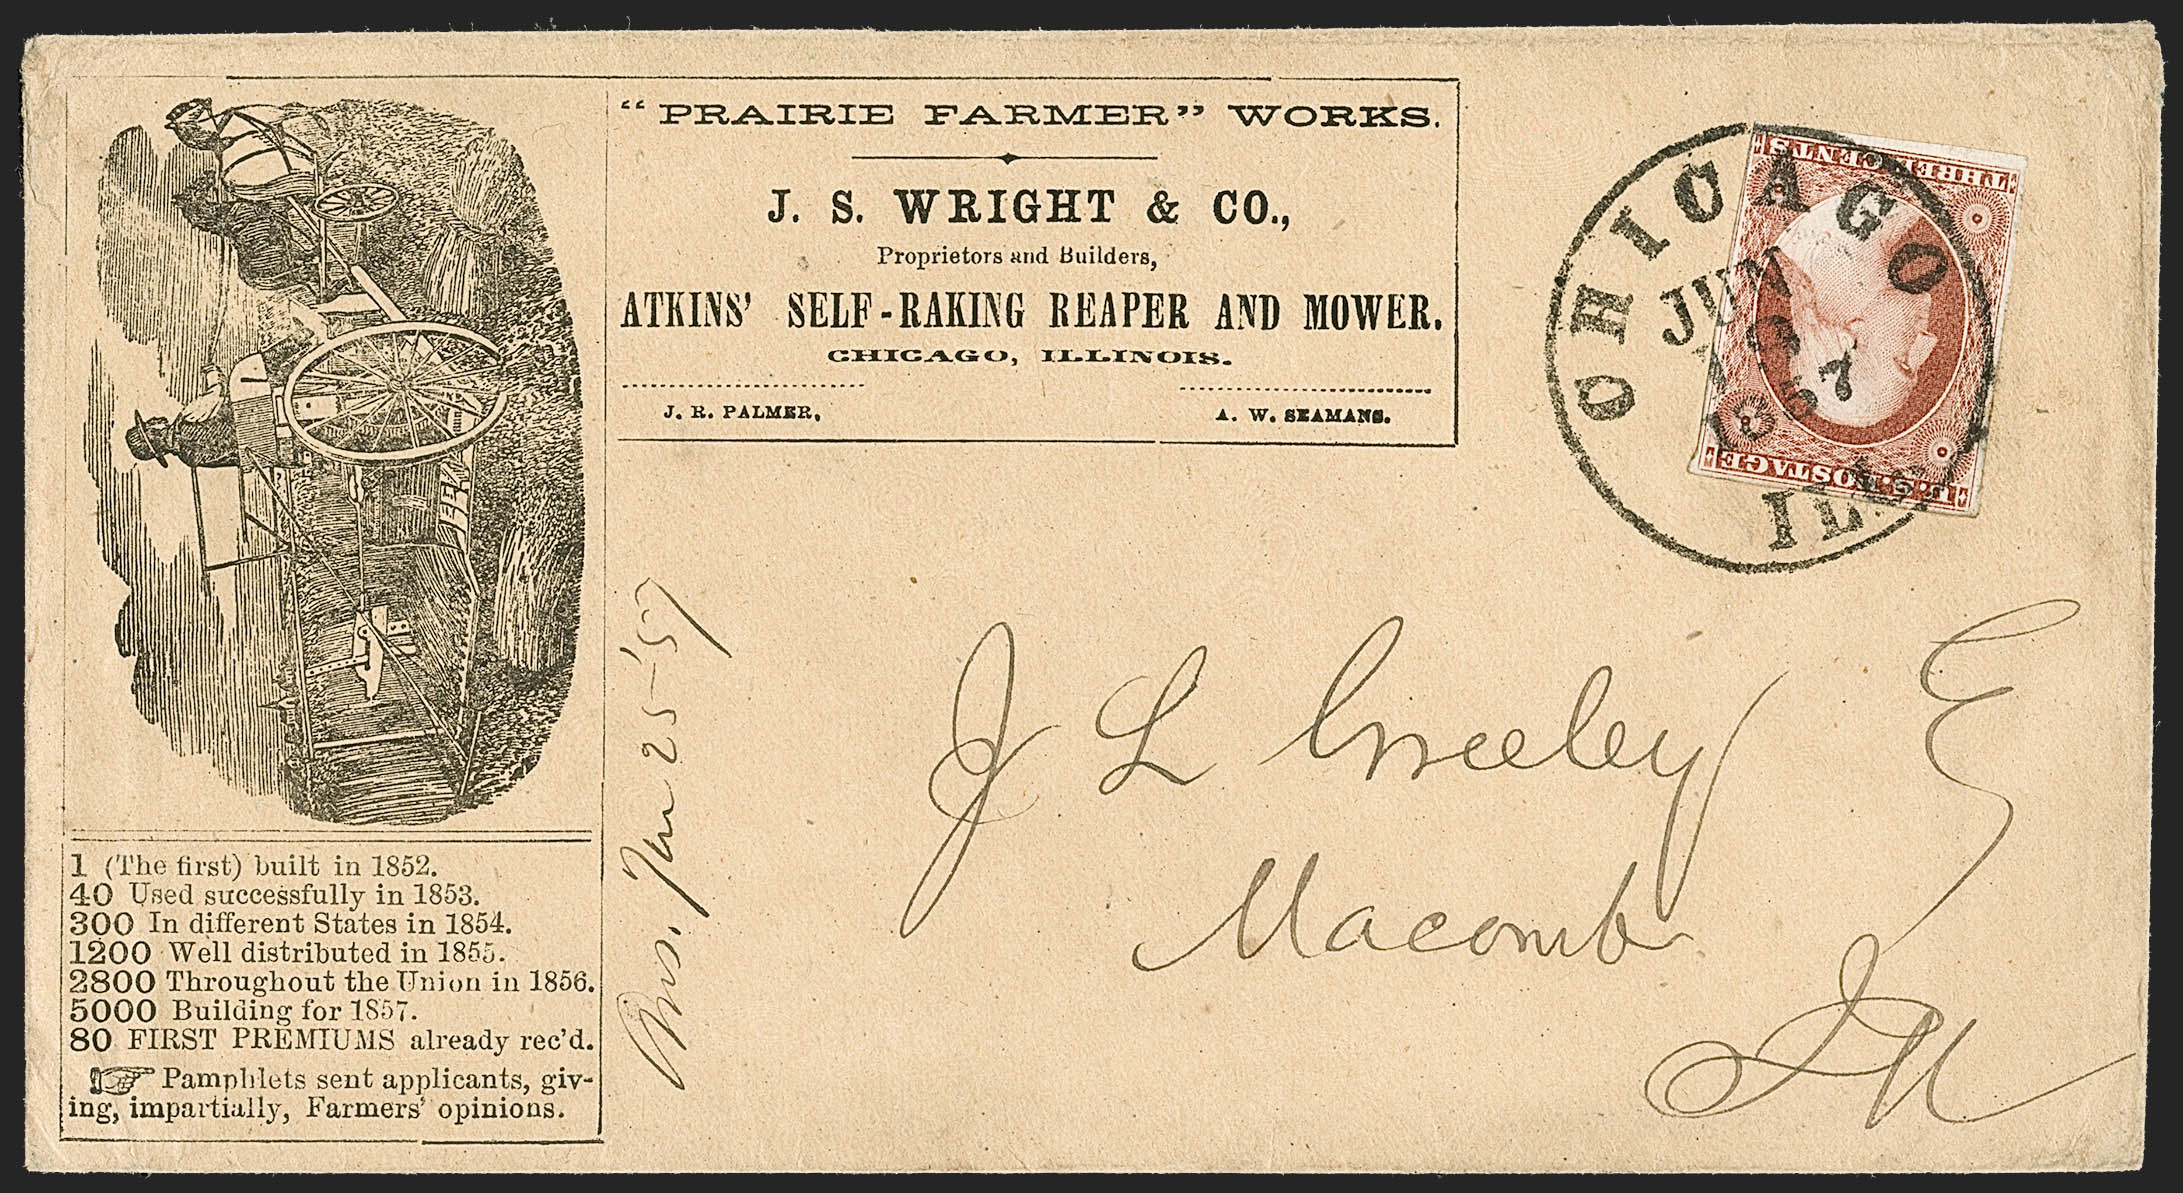 “PRAIRIE FARMER” WORKS.
J. S. WRIGHT & CO.,
Proprietors and Builders,
ATKINS' SELF-RAKING REAPER AND MOWER.
CHICAGO, ILLINOIS.
J. R. PALMER,
A. W. SEAMANS.
1 (The first) built in 1852.
40 Used successfully in 1853.
300 In different States in 1854.
1200 Well distributed in 1855.
2800 Throughout the Union in 1856.
5000 Building for 1857.
80 FIRST PREMIUMS already rec'd.
Pamphlets sent applicants, giv-
ing, impartially, Farmers' opinions.
CHICAGO
1857
ILL
THREE CENTS
U.S. POSTAGE
25 '57
J L Greeley E
Macomb
Ill